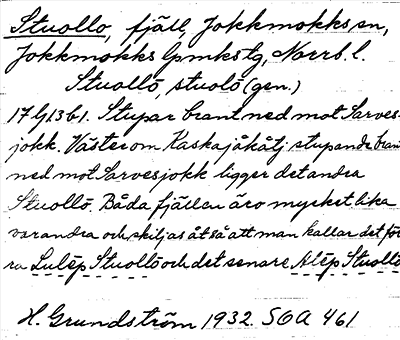 Stuollo, fjäll, Jokkmokks sn,
Jokkmokks lpmkstg, Norrb. l.
Stuollō, stuolō (gen.)
17 G 13 b 1. Stupar brant ned mot Sarves-
jokk. Väster om Kaskajåkåtj stupande brant
ned mot Sarvesjokk ligger det andra
Stuollō. Båda fjällen äro mycket lika
varandra och skiljas åt så att man kallar det för
ra Lulēp Stuollō och det senare Alēp Stuollō
H. Grundström 1932. SOA 461